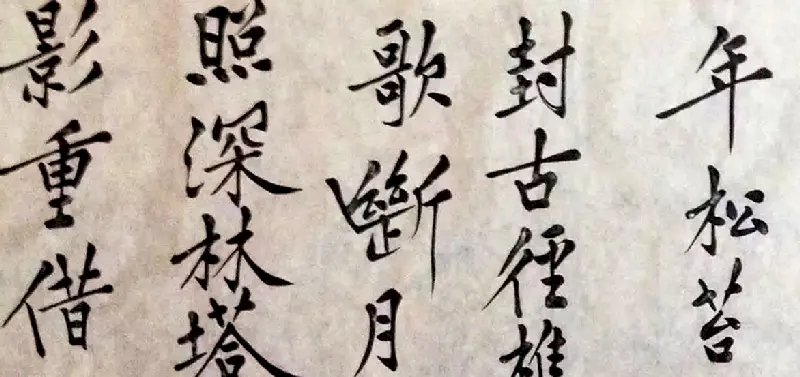 年松苔
封古徑樵
歌斷月
照深林塔
影重借